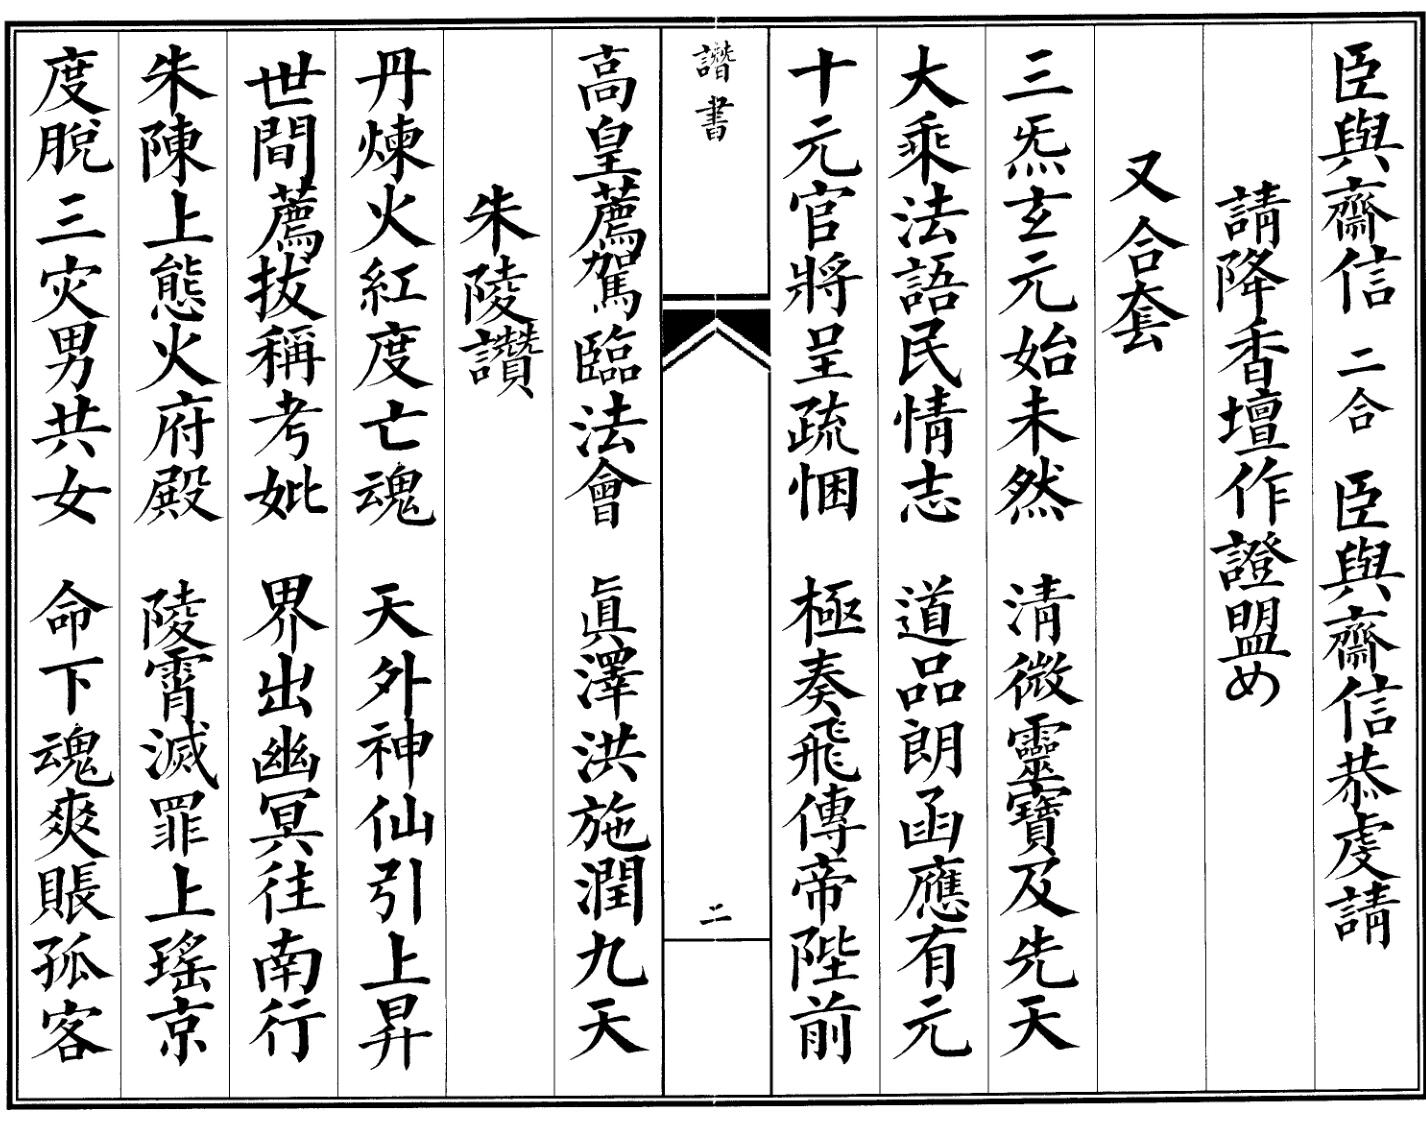 臣與齋信 二合 臣與齋信恭虔請
請降香壇作證盟め
又合套
三炁玄元始未然 清微靈寶及先天
大乘法語民情志 道品朗函應有元
十元官將呈疏悃 極奏飛傳帝陛前
讚書
二
高皇薦駕臨法會 眞澤洪施潤九天
朱陵讚
丹煉火紅度亡魂 天外神仙引上昇
世間薦拔稱考妣 界出幽冥往南行
朱陳上態火府殿 陵霄滅罪上瑤京
度脫三灾男共女 命下魂爽賬孤客